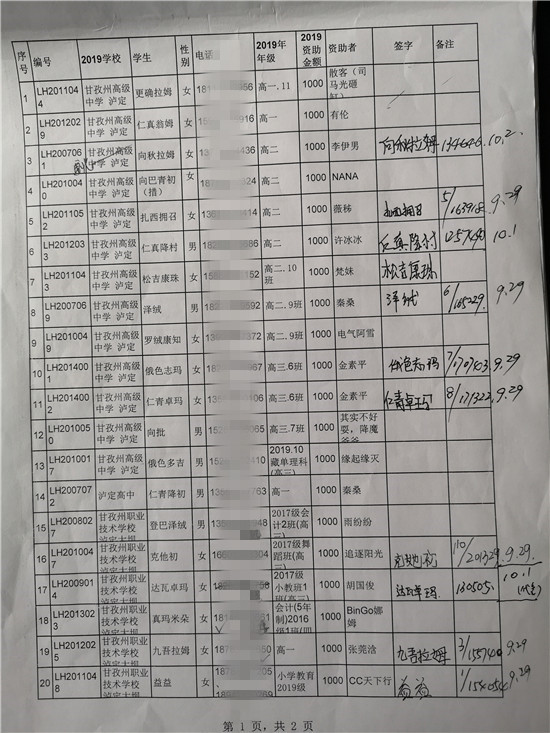 序号 编号 2019学校 学生 性别 电话 2019年年级 2019资助金额 资助者 签字 备注
1 LH2011044 甘孜州高级中学 泸定 更确拉姆 女 高一.11 1000 散客（司马光砸缸）
2 LH2012029 甘孜州高级中学 泸定 仁真翁姆 女 916 高一 1000 有伦
3 LH2007061 甘孜州高级中学 泸定 向秋拉姆 女 436 高二 1000 李伊男 向秋拉姆 134646. 10.2
4 LH2010040 甘孜州高级中学 泸定 向巴青初（措） 女 924 高二 1000 NANA
5 LH2011052 甘孜州高级中学 泸定 扎西拥召 女 高二 1000 薇秭 5/163918 9.29
6 LH2012033 甘孜州高级中学 泸定 仁真降村 男 986 高二 1000 许冰冰 仁真降村 125740 10.1
7 LH2011043 甘孜州高级中学 泸定 松吉康珠 女 152 高二.10班 1000 梵妹 松吉康珠
8 LH2007069 甘孜州高级中学 泸定 泽绒 男 592 高二.9班 1000 秦桑 泽绒 6/165229. 9.29
9 LH2010049 甘孜州高级中学 泸定 罗绒康知 女 372 高二.9班 1000 电气阿雪
10 LH2014001 甘孜州高级中学 泸定 俄色志玛 女 高三.6班 1000 金素平 俄色志玛 7/170743 9.29
11 LH2014002 甘孜州高级中学 泸定 仁青卓玛 女 高三.6班 1000 金素平 仁青卓玛 8/171322 9.29
12 LH2010050 甘孜州高级中学 泸定 向批 男 高三.7班 1000 其实不好耍，降魔爷爷
13 LH2010017 甘孜州高级中学 泸定 俄色多吉 男 410 2019.10藏单理科(高三) 1000 缘起缘灭
14 LH2007072 泸定高中 仁青降初 男 763 高一 1000 秦桑
15 LH2008027 甘孜州职业技术学校 泸定大坝 登巴泽绒 男 48 2017级会计2班(高三) 1000 雨纷纷
16 LH2010047 甘孜州职业技术学校 泸定大坝 克他初 女 004 2017级舞蹈班(高三) 1000 追逐阳光 10/201329 9.29.
17 LH2009014 甘孜州职业技术学校 泸定大坝 达瓦卓玛 女 2017级小教班1班(高三) 1000 胡国俊 达瓦卓玛 130505. 10.1
18 LH2013023 甘孜州职业技术学校 泸定大坝 真玛米朵 女 会计(5年制)2016级1班(四 1000 BinGo娜姆
19 LH2012025 甘孜州职业技术学校 泸定大坝 九吾拉姆 女 高一 1000 张莞浛 九吾拉姆 3/155740 9.29
20 LH2011048 甘孜州职业技术学校 泸定大坝 益益 女 小学教育2019级 1000 CC天下行 益益 1/154054 9.29
第 1 页，共 2 页